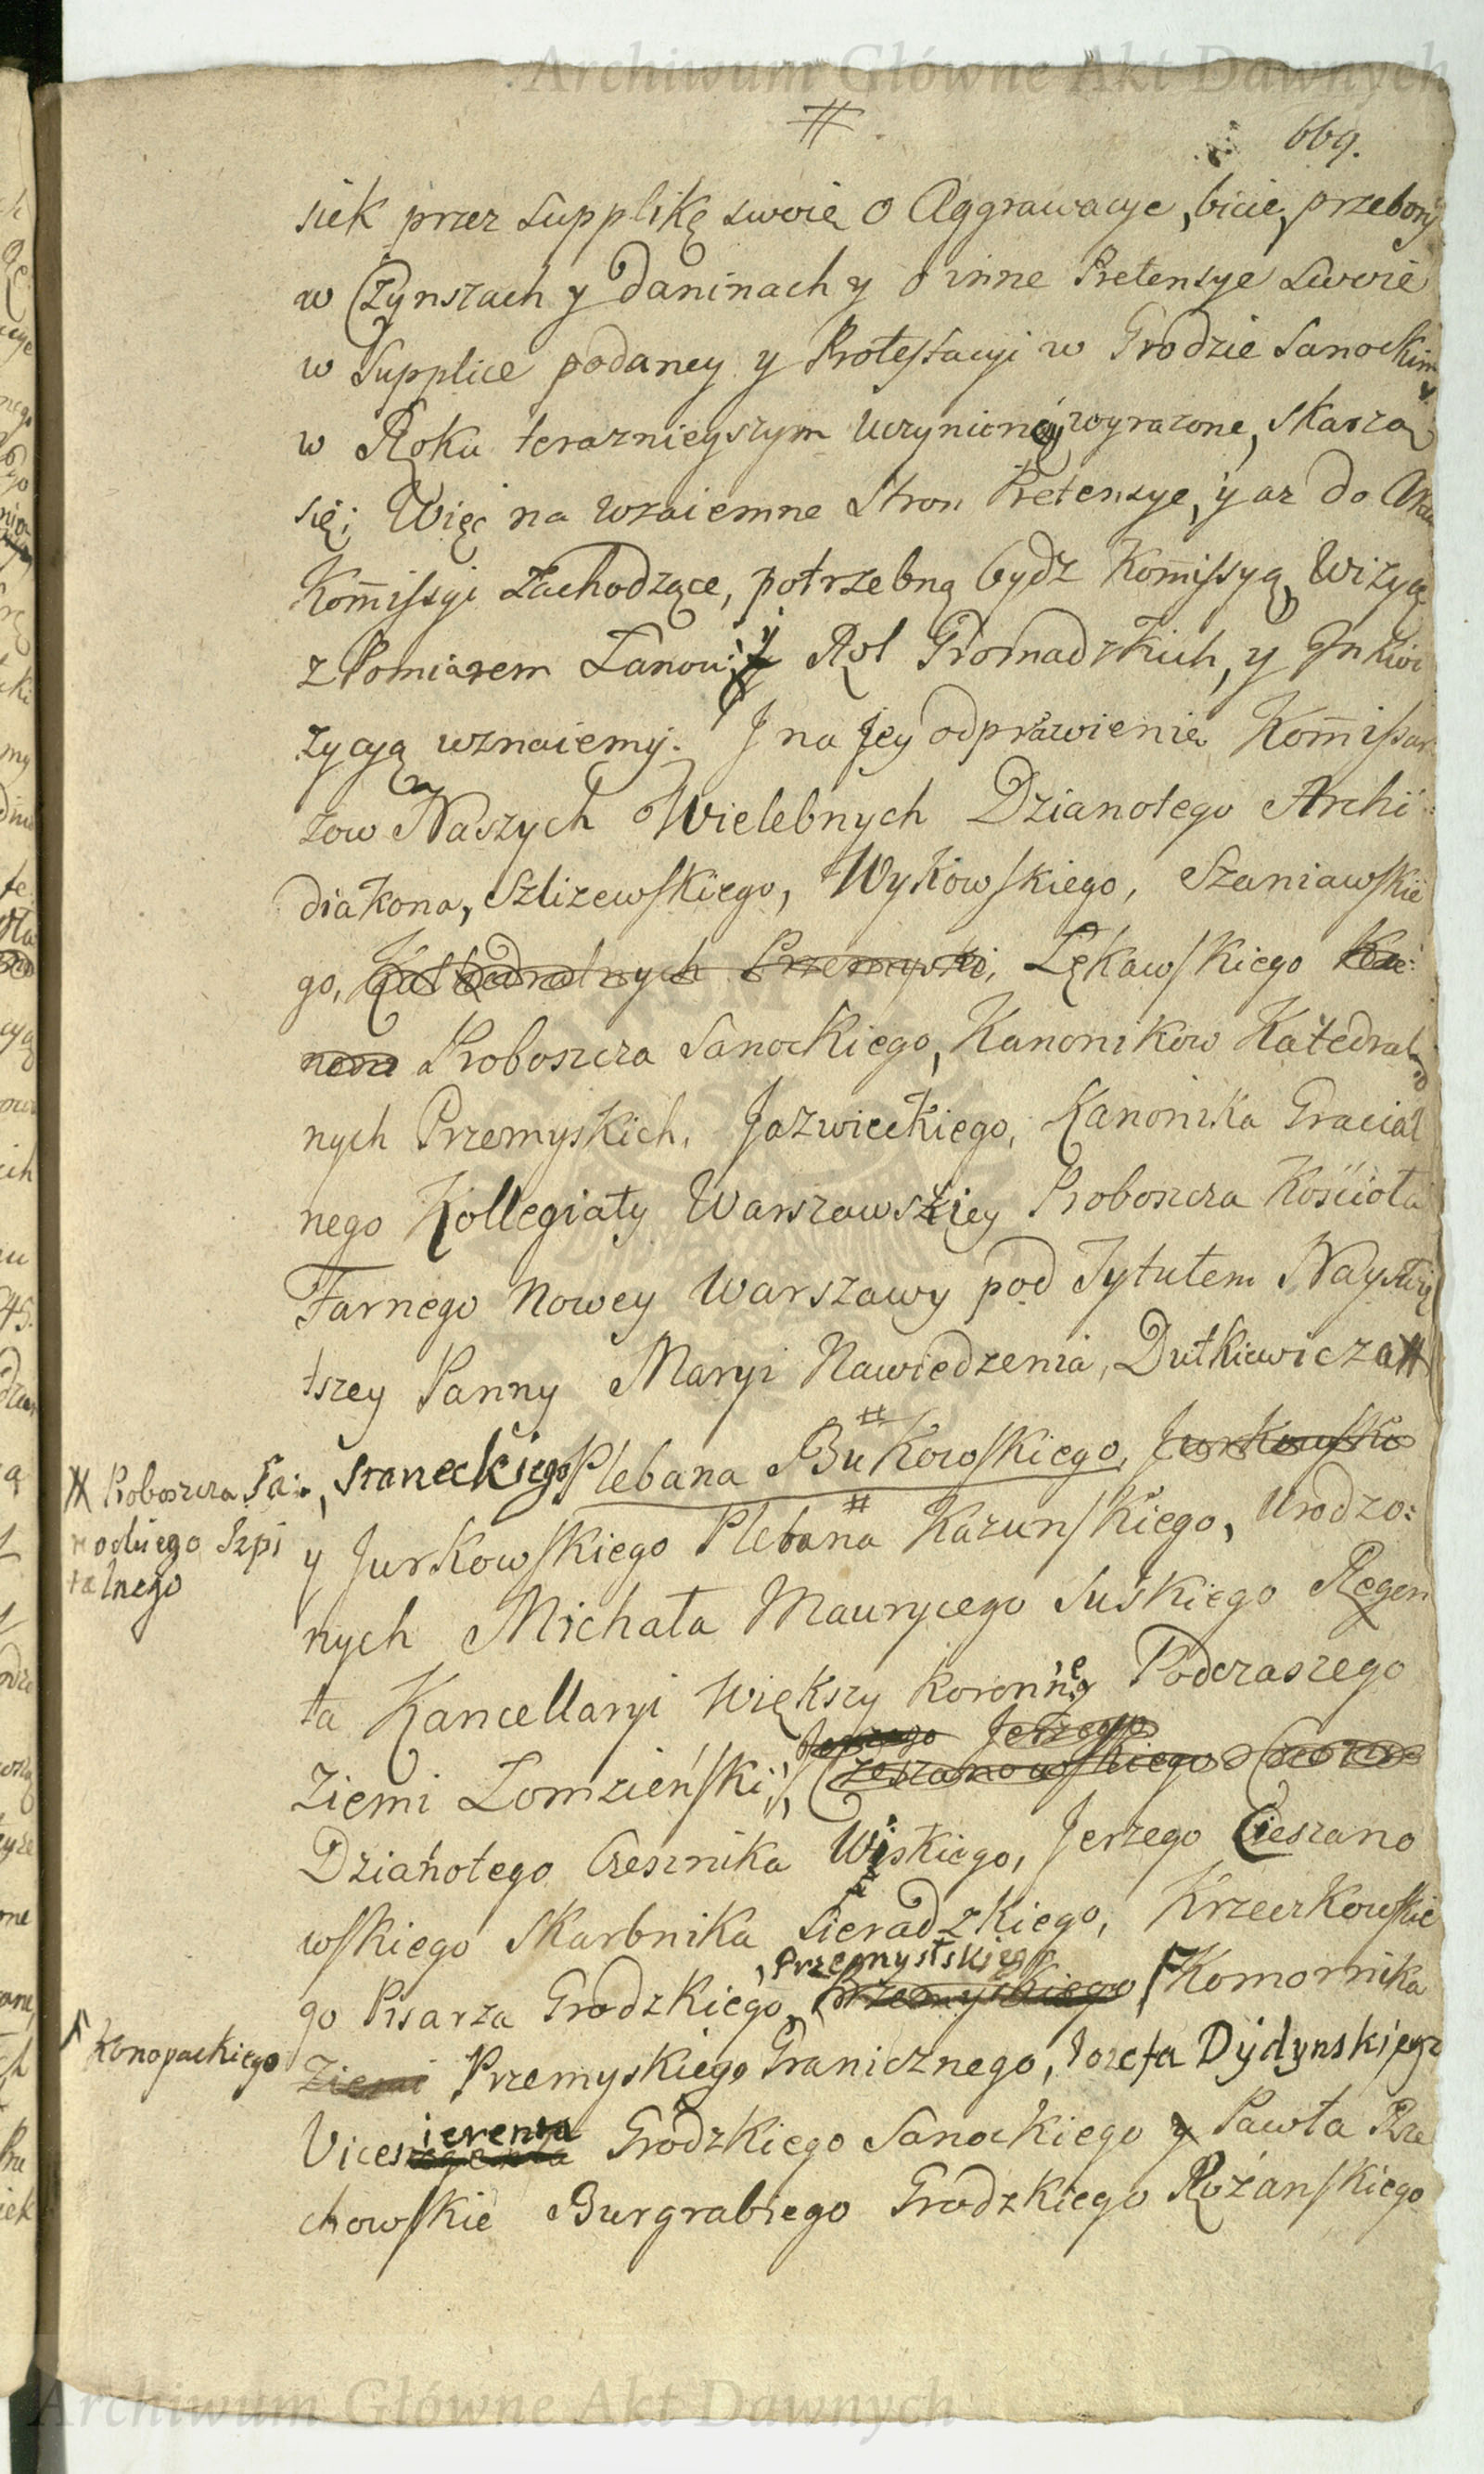 Archiwum Główne Akt Dawnych
669.
siek przez Supplikę swoię o Aggrawacye, bicie, przebory
w Czynszach y Daninach y o inne Pretensye swoie
w Supplice podaney y Protestacyi w Grodzie Sanockim
w Roku teraznieyszym uczynioney wyrazone, skarzą
się; Więc na wzaiemne Stron Pretensye, y az do
Kom̃issyi zachodzące, potrzebną bydz Kom̃issyą, Wizyą
z Pomiarem Łanow, y Rol Gromadzkich, y Inkwi
zycyą wznaiemy. I na Jey odprawienie Kom̃issar
zow Naszych Wielebnych Dzianotego Archi
diakona, Szlizewskiego, Wykowskiego, Szaniawskie
go, Katedralnych Przemyski, Łękawskiego
Proboszcza Sanockiego, Kanonikow Katedral
nych Przemyskich, Jazwieckiego, Kanonika Gracial
nego Kollegiaty Warszawskiey Proboszcza Kościoła
Farnego Nowey Warszawy pod Tytułem Nayświę
tszey Panny Maryi Nawiedzenia, Dutkiewicza #
# Proboszcza Sa:
nockiego Szpi
talnego
, Staneckiego Plebana Bukowskiego, Jurkowski
y Jurkowskiego Plebana Kazunskiego, Urodzo:
nych Michała Maurycego Suskiego Regen
ta Kancellaryi Większy Koronney Podczaszego
Jerzego
Ziemi Łomzieński, Czeszanowskiego
Dzianotego Czesznika Wiskiego, Jerzego Cieszano
wskiego Skarbnika Sieradzkiego, Krzeczkowskie
, Przemyslskiego
go Pisarza Grodzkiego, Przemyskiego Komornika
Konopackiego
Ziemi Przemyskiego Granicznego, Jozefa Dydynskiego
Vicesgerenta Grodzkiego Sanockiego y Pawła Rze
chowskie Burgrabiego Grodzkiego Rożanskiego
Archiwum Główne Akt Dawnych